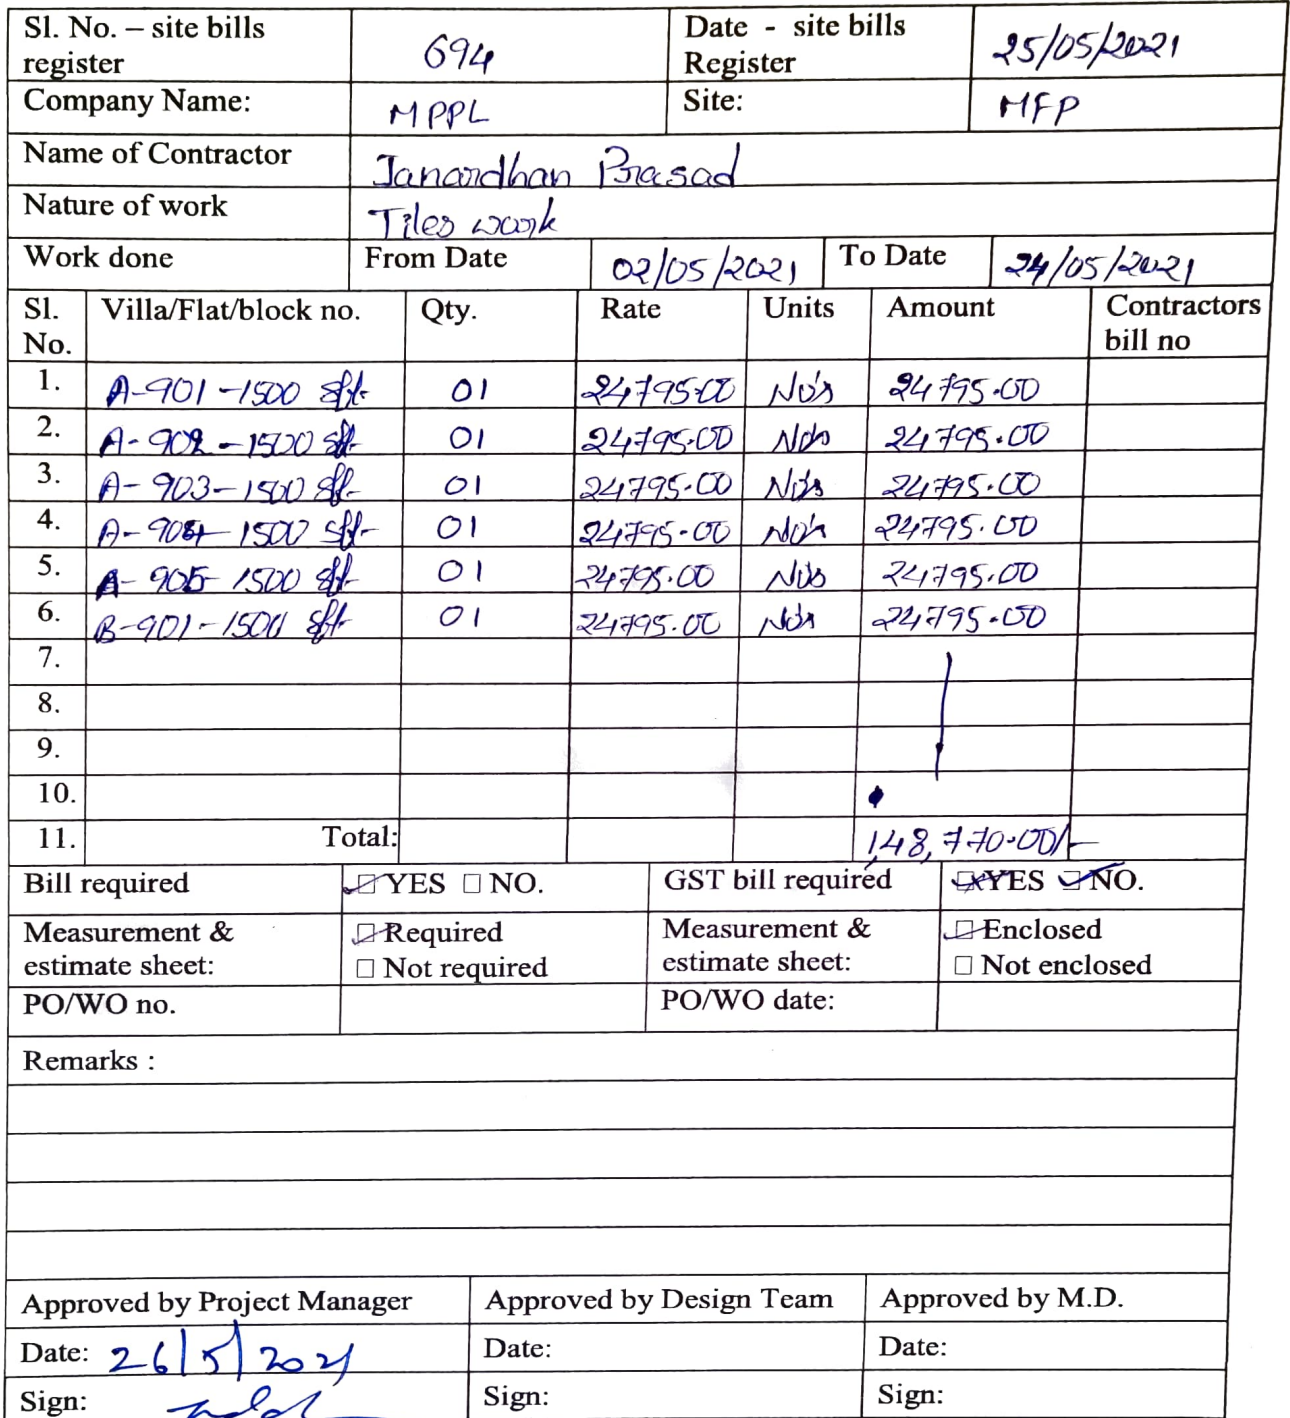 Sl. No. – site bills register 694 Date - site bills Register 25/05/2021
Company Name: MPPL Site: MFP
Name of Contractor Janardhan Prasad
Nature of work Tiles work
Work done From Date 02/05/2021 To Date 24/05/2021
Sl. No. Villa/Flat/block no. Qty. Rate Units Amount Contractors bill no
1. A-901-1500 sft 01 24795.00 No's 24795.00
2. A-902-1500 sft 01 24795.00 No's 24795.00
3. A-903-1500 sft 01 24795.00 No's 24795.00
4. A-904-1500 sft 01 24795.00 No's 24795.00
5. A-905-1500 sft 01 24795.00 No's 24795.00
6. B-901-1500 sft 01 24795.00 No's 24795.00
7.
8.
9.
10.
11. Total: 1,48,770.00/-
Bill required YES NO. GST bill required YES NO.
Measurement & estimate sheet: Required Not required Measurement & estimate sheet: Enclosed Not enclosed
PO/WO no. PO/WO date:
Remarks :
Approved by Project Manager Approved by Design Team Approved by M.D.
Date: 26/5/2021 Date: Date:
Sign: Sign: Sign: